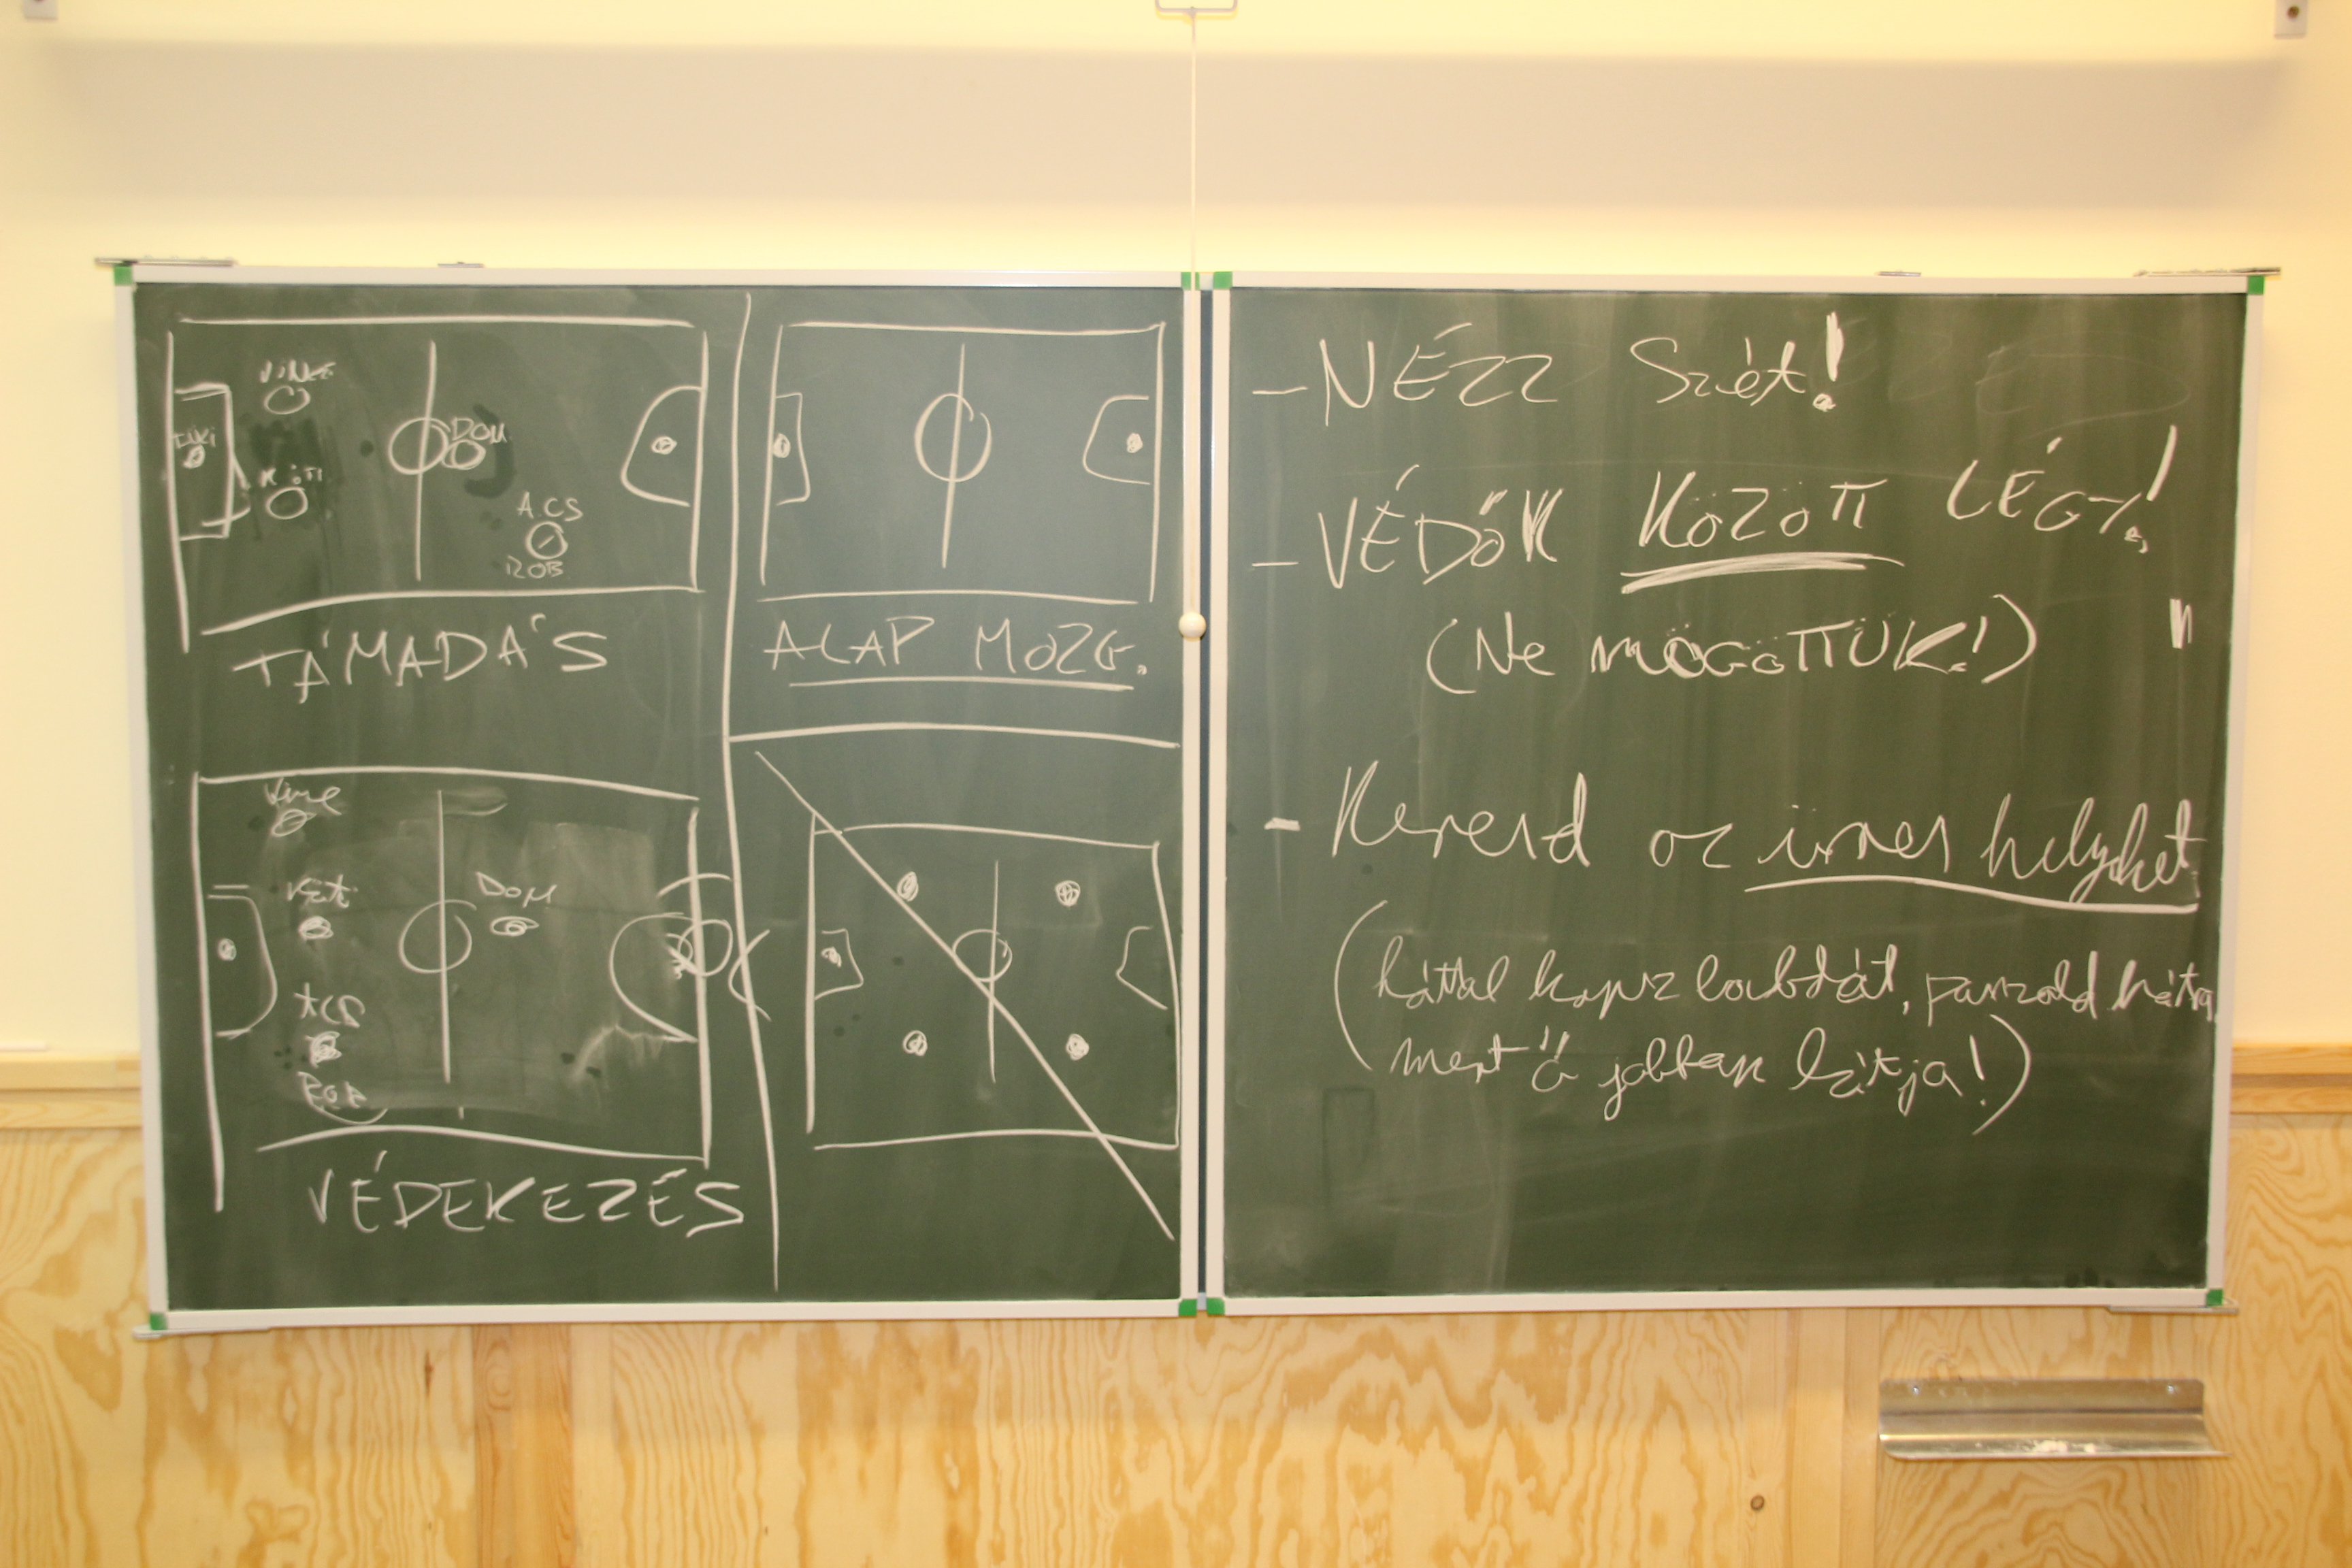 VINCE
DOM
A.CS
ROB
TÁMADÁS
ALAP MOZG.
Vince
DOM
ROB
VÉDEKEZÉS
- NÉZZ Szét!
- VÉDŐK KÖZÖTT LÉGY!
(Ne MÖGÖTTÜK!)
- Keresd az üres helyket
(háttal kapsz labdát, passzold hátra
mert ő jobban látja!)